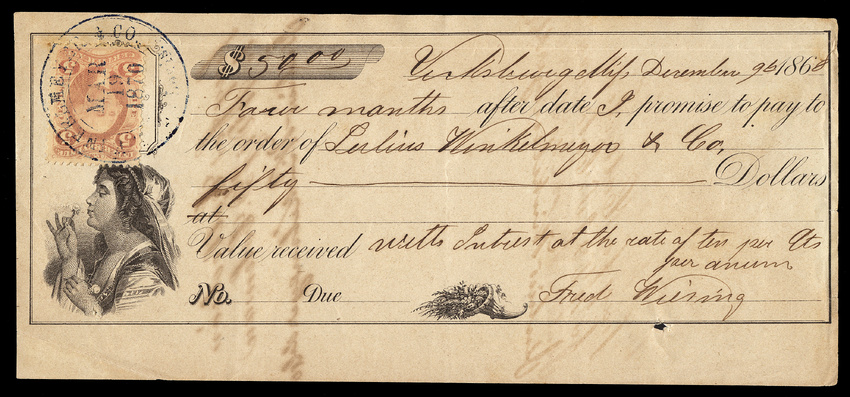 & CO.
MAR
19
1870
$ 50 00
Vicksburg Miss December 9th 1868
Four months after date I promise to pay to
the order of Julius Winkelmeyer & Co.
fifty Dollars
at
Value received with Intrest at the rate of ten per Cts
per anum
No. Due Fred Wiesing